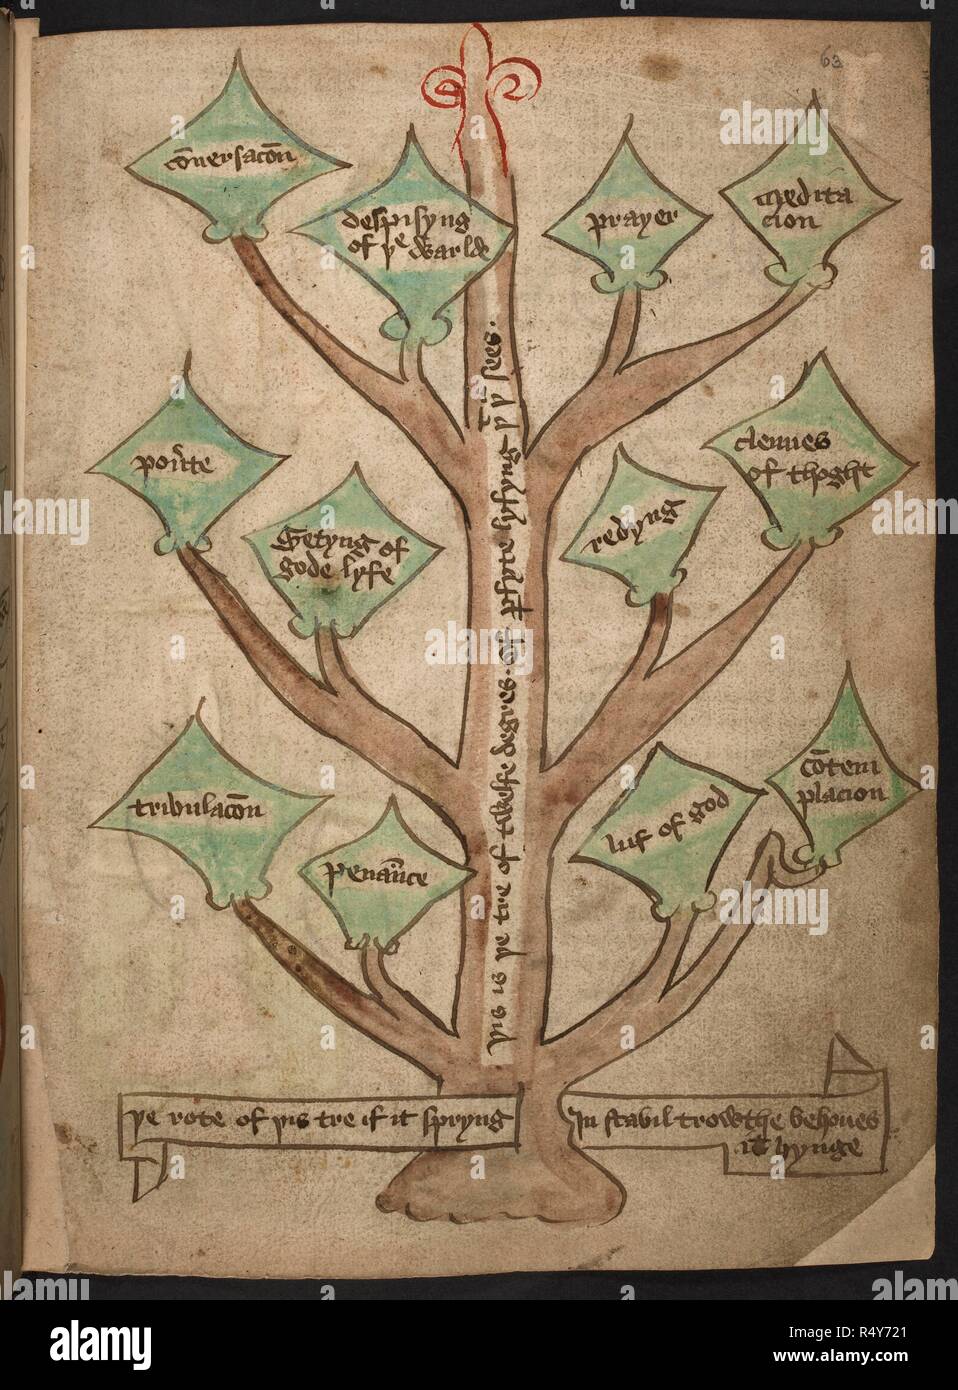 63
co̅uersaco̅n
despisyng
of þe warlde
prayer
medita
cion
pou̅te
Setyng of
gode lyfe
redyng
clennes
of thoght
tribulaco̅n
penau̅ce
luf of god
co̅tem
placion
þis is þe tre of twelfe degres. Of p̱fyte lyfyng þt þu sees.
þe rote of þis tre if it spryng
In stabil trowthe behoues
it hynge
alamy
Image ID: R4Y721
www.alamy.com